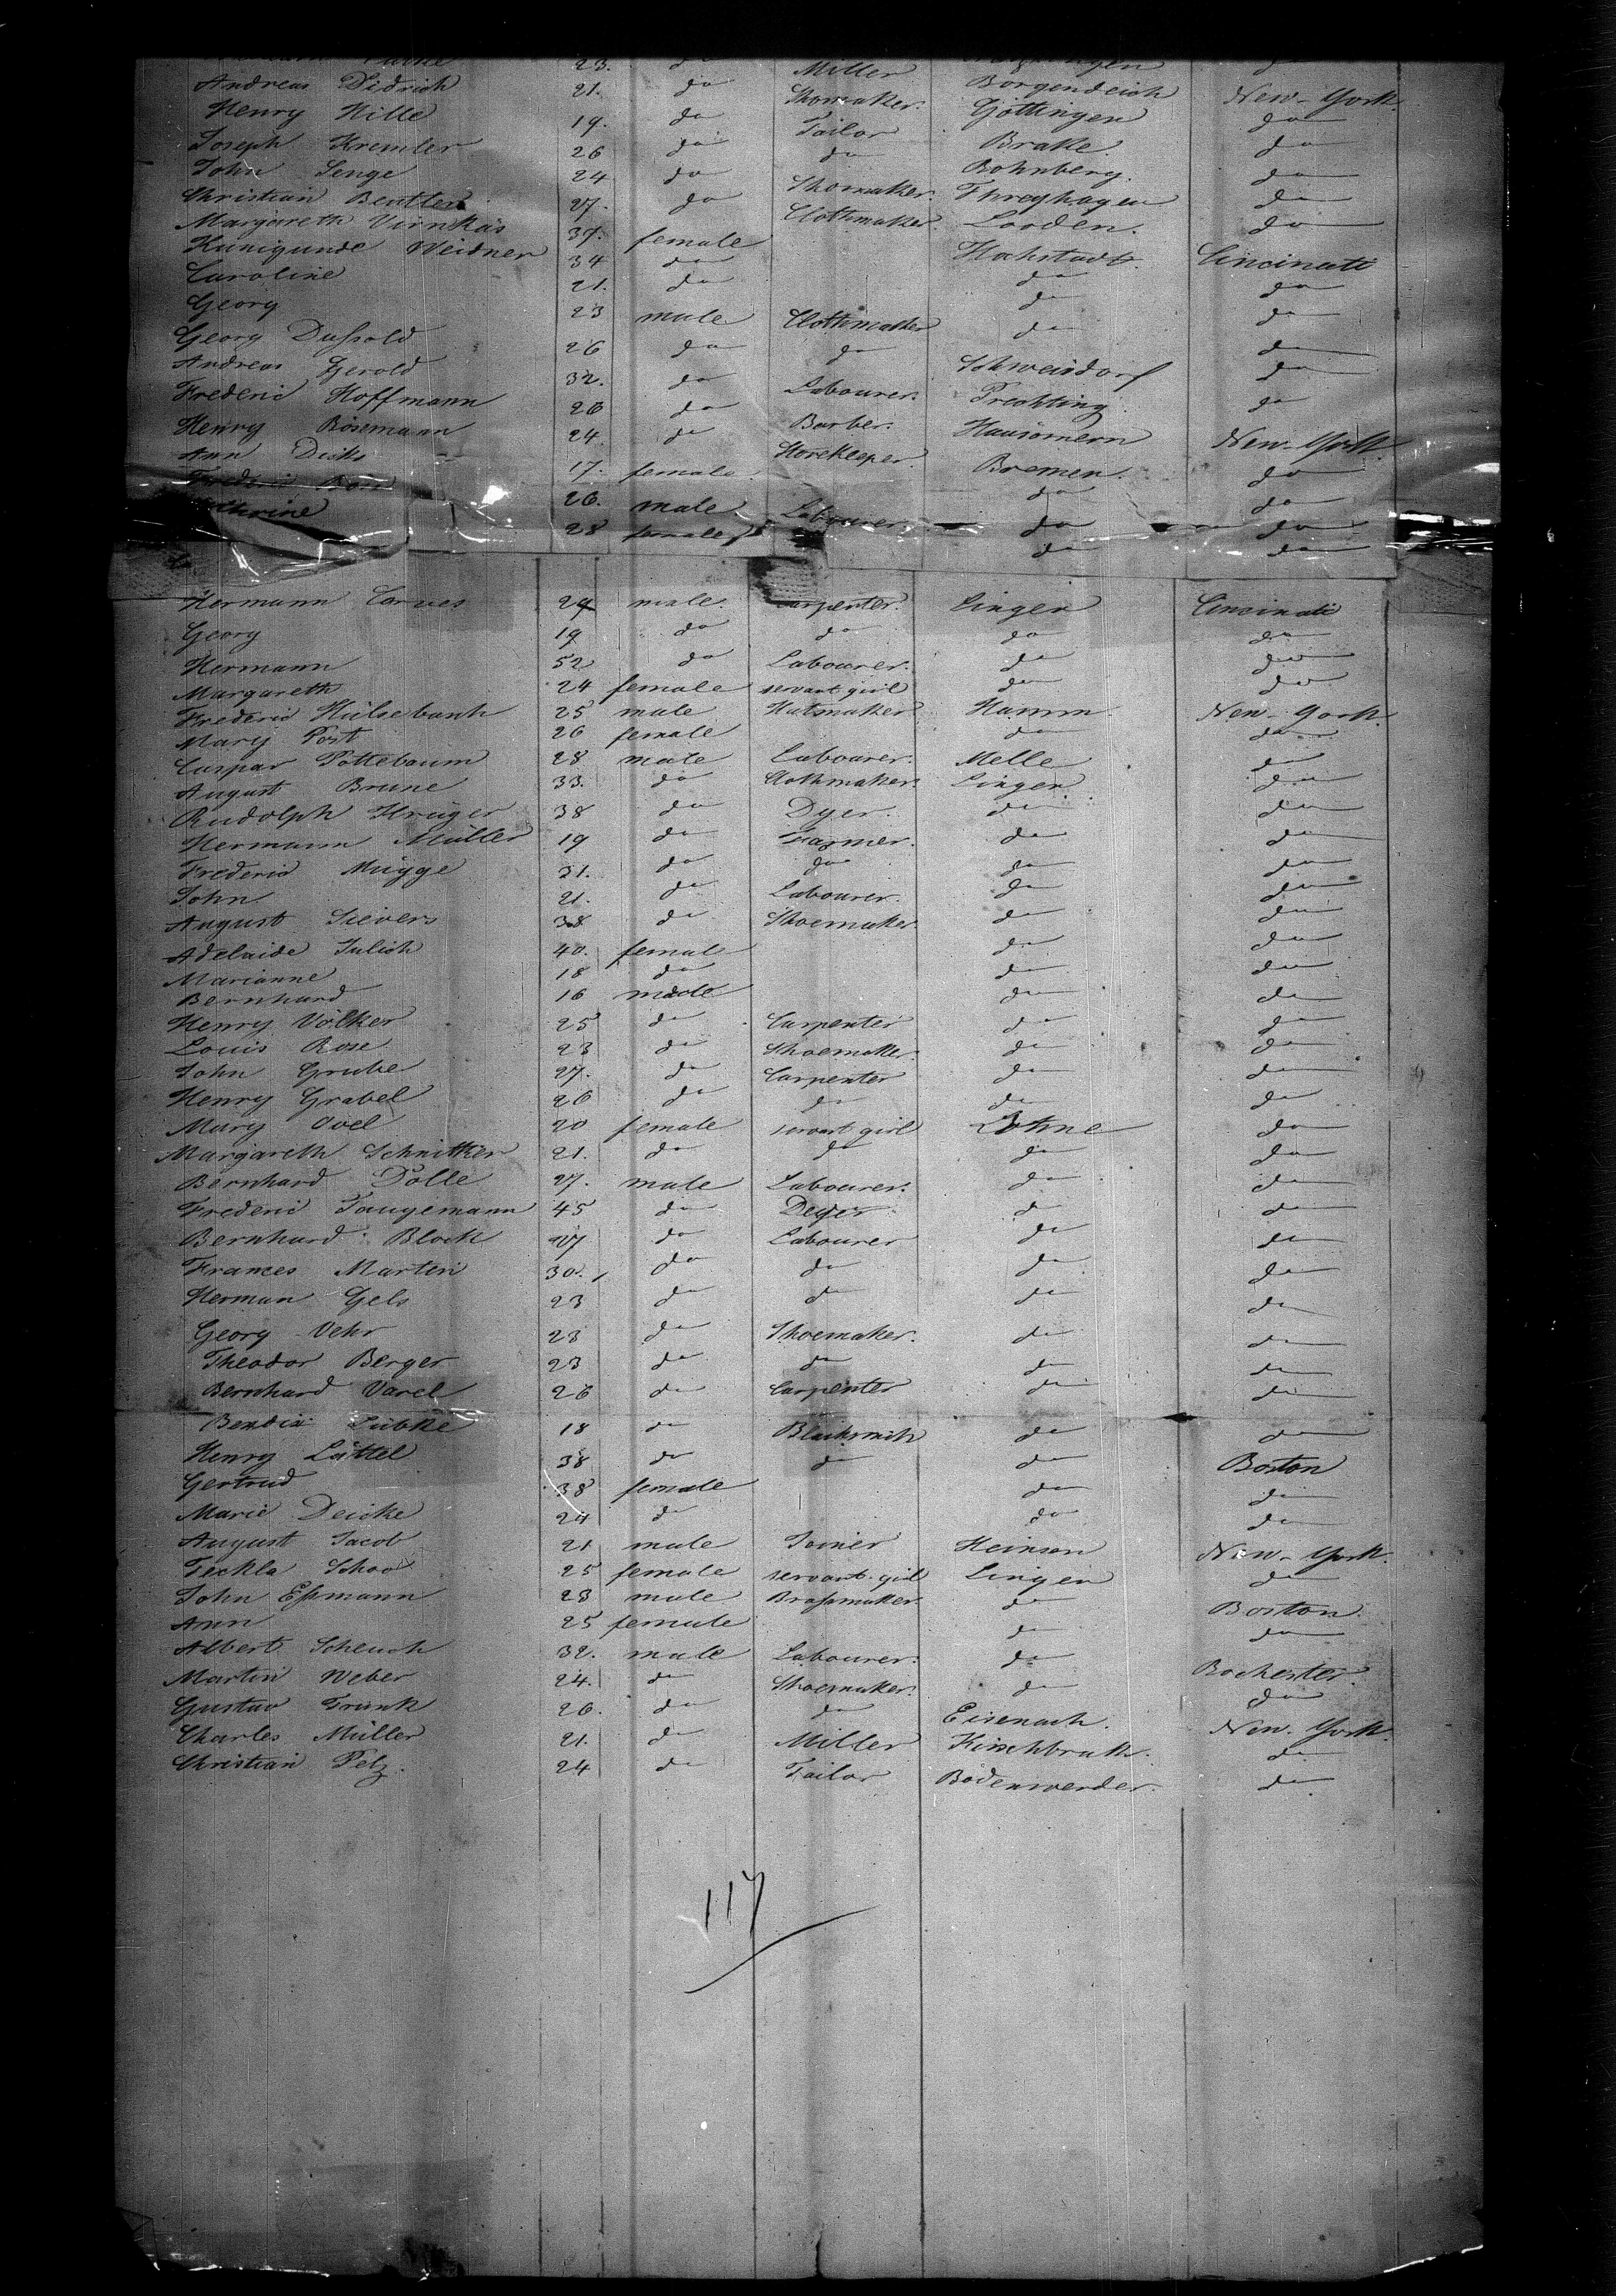 23. do do
Andreas Didrich 21. do Miller Borgendeich New-York.
Henry Hille 19. do Shomaker. Göttingen do
Joseph Kremler 26 do Tailor Brake. do
John Senge 24 do do Bohnberg. do
Christian Beutler 27. do Shomaker. Threyhagen do
Margareth Virnkäs 37. female Clothmaker. Loorden. do
Kunigunde Weidner 34 do Hochstadt. Cincinati
Caroline 21. do do do
Georg 23 male Clothmaker do do
Georg Dußold 26 do do do do
Andreas Gerold 32. do Labourer. Schweisdorf do
Frederic Hoffmann 26 do Barber. Trechting. do
Henry Bösemann 24. do Storekeeper. Hausomern New-York.
Ann Dicks 17. female. Bremen. do
Frederic 26. male Labourer. do do
28 female do do
do do
Hermann Carves 24 male. Carpenter. Lingen Cincinati
Georg 19 do do do do
Hermann 52 do Labourer. do do
Margareth 24 female servant girl do do
Frederic Hülsebush 25 male Hatmaker. Hamm. New-York.
Mary Post 26 female do do
Caspar Pottebaum 28 male Labourer. Melle do
August Brune 33. do Clothmaker. Lingen. do
Rudolph Krüger 38 do Dyer. do do
Hermann Müller 19 do Farmer. do do
Frederic Mügge 31. do do do do
John 21. do Labourer. do do
August Sievers 38 do Shoemaker do do
Adelaide Julich 40. female do do
Marianne 18 do do do
Bernhard 16 male do do
Henry Völker 25 do Carpenter do do
Louis Rose 23 do Shoemaker. do do
John Grube 27. do Carpenter do do
Henry Grabel 26 do do do do
Mary Ovel 20 female servant girl Lohne do
Margareth Schnitker 21. do do do do
Bernhard Dölle 27. male Labourer. do do
Frederic Tangemann 45 do Deyer do do
Bernhard Block 27 do Labourer do do
Frances Martin 30. do do do do
Herman Gels 23 do do do do
Georg Vehr 28 do Shoemaker. do do
Theodor Berger 23 do do do do
Bernhard Varel 26 do Carpenter do do
Bendix Lübke 18 do Blacksmith do do
Henry Lüttel 38 do do do Boston
Gertrud 38 female do do
Marie Deicke 24 do do do
August Jacob 21 male Joiner Heinsen New-York.
Teckla Schoo 25 female servant girl Lingen do
John Eßmann 23 male Braßmaker. do Boston.
Ann 25 female do do
Albert Scheuch 32. male Labourer. do Rochester.
Martin Weber 24. do Shoemaker. do do
Gustav Trunk 26. do do Eisenach. New-York.
Charles Müller 21. do Miller Kirschbrak. do
Christian Pelz. 24 do Tailor Bodenwerder. do
117